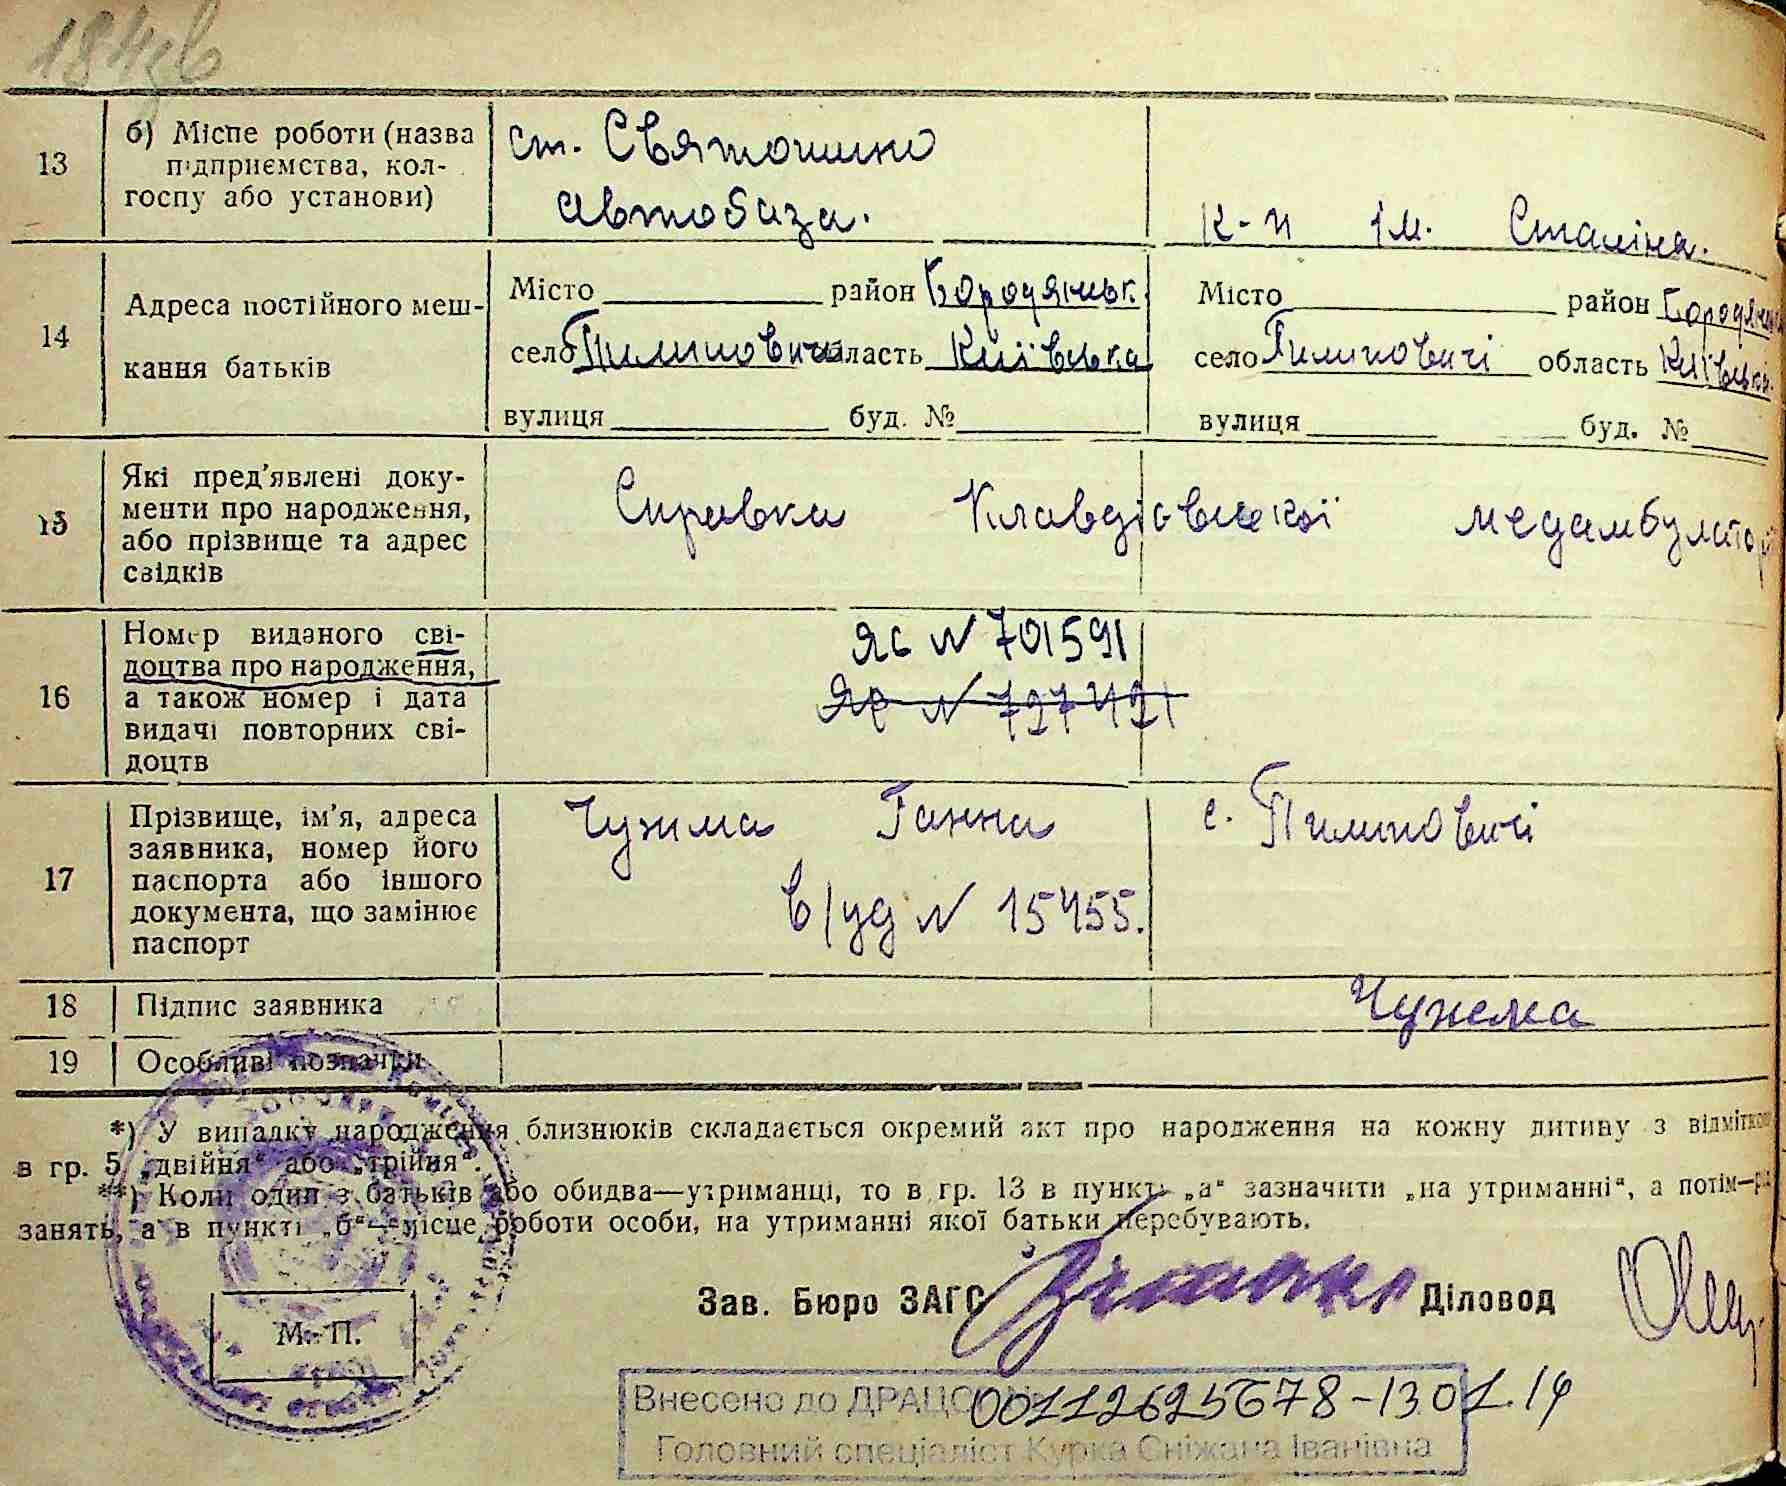 184зв
13 б) Місце роботи (назва підприємства, колгоспу або установи)
ст. Святошино
автобаза.
к-п ім. Сталіна.
14 Адреса постійного мешкання батьків
Місто район Бородянськ.
село Пилиповичі область Київська
вулиця буд. №
Місто район Бородянськ
село Пилиповичі область Київська
вулиця буд. №
15 Які пред'явлені документи про народження, або прізвище та адрес свідків
Справка Клавдієвської медамбулаторії
16 Номер виданого свідоцтва про народження, а також номер і дата видачі повторних свідоцтв
ЯС N 701591
ЯР N 727421
17 Прізвище, ім'я, адреса заявника, номер його паспорта або іншого документа, що замінює паспорт
Чужма Ганна с. Пилиповичі
в/уд N 15455.
18 Підпис заявника
Чужма
19 Особливі позначки
*) У випадку народження близнюків складається окремий акт про народження на кожну дитину з відміткою
в гр. 5 „двійня“ або „трійня“.
**) Коли один з батьків або обидва—утриманці, то в гр. 13 в пункті „а“ зазначити „на утриманні“, а потім—рід
занять, а в пункті „б“—місце роботи особи, на утриманні якої батьки перебувають.
Зав. Бюро ЗАГС Діловод
М. П.
Внесено до ДРАЦС 00112625678-1301.14
Головний спеціаліст Курка Сніжана Іванівна